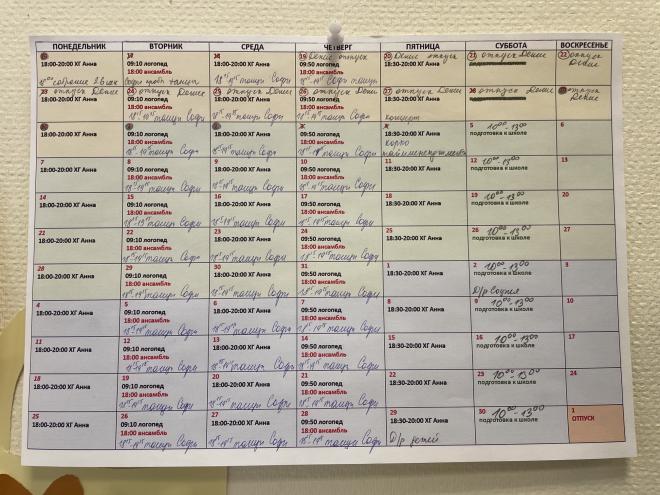 ПОНЕДЕЛЬНИК ВТОРНИК СРЕДА ЧЕТВЕРГ ПЯТНИЦА СУББОТА ВОСКРЕСЕНЬЕ
17 19 Денис отпуск 20 Денис отпуск 21 отпуск Денис 22 отпуск Денис
18:00-20:00 ХГ Анна 09:10 логопед 18:00-20:00 ХГ Анна 09:50 логопед 18:30-20:00 ХГ Анна
18:00 ансамбль 18:00 ансамбль
18:00 собрание танцы Софи
23 отпуск Денис 24 отпуск Денис 25 отпуск Денис 26 отпуск Денис 27 отпуск Денис отпуск Денис отпуск Денис
18:45-19:45 танцы Софи 18:45-19:45 танцы Софи 18:45-19:45 танцы Софи концерт
5 10:00-13:00
18:00-20:00 ХГ Анна 09:10 логопед 18:00-20:00 ХГ Анна 09:50 логопед 18:30-20:00 ХГ Анна подготовка к школе
18:00 ансамбль 18:00 ансамбль
18:45-19:45 танцы Софи танцы Софи танцы Софи
7 8 9 10 11 12 10:00-13:00 13
18:00-20:00 ХГ Анна 09:10 логопед 18:00-20:00 ХГ Анна 09:50 логопед 18:30-20:00 ХГ Анна подготовка к школе
18:00 ансамбль 18:00 ансамбль
танцы Софи танцы Софи танцы Софи
14 15 16 17 18 19 10:00-13:00 20
18:00-20:00 ХГ Анна 09:10 логопед 18:00-20:00 ХГ Анна 09:50 логопед 18:30-20:00 ХГ Анна подготовка к школе
18:00 ансамбль 18:00 ансамбль
танцы Софи танцы Софи танцы Софи
21 22 23 24 25 26 10:00-13:00 27
18:00-20:00 ХГ Анна 09:10 логопед 18:00-20:00 ХГ Анна 09:50 логопед 18:30-20:00 ХГ Анна подготовка к школе
18:00 ансамбль 18:00 ансамбль
танцы Софи танцы Софи танцы Софи
28 29 30 31 1 2 10:00-13:00 3
18:00-20:00 ХГ Анна 09:10 логопед 18:00-20:00 ХГ Анна 09:50 логопед 18:30-20:00 ХГ Анна подготовка к школе
18:00 ансамбль 18:00 ансамбль
танцы Софи танцы Софи танцы Софи Д/р
4 5 6 7 8 9 10:00-13:00 10
18:00-20:00 ХГ Анна 09:10 логопед 18:00-20:00 ХГ Анна 09:50 логопед 18:30-20:00 ХГ Анна подготовка к школе
18:00 ансамбль 18:00 ансамбль
танцы Софи танцы Софи танцы Софи
11 12 13 14 15 16 10:00-13:00 17
18:00-20:00 ХГ Анна 09:10 логопед 18:00-20:00 ХГ Анна 09:50 логопед 18:30-20:00 ХГ Анна подготовка к школе
18:00 ансамбль 18:00 ансамбль
танцы Софи танцы Софи танцы Софи
18 19 20 21 22 23 10:00-13:00 24
18:00-20:00 ХГ Анна 09:10 логопед 18:00-20:00 ХГ Анна 09:50 логопед 18:30-20:00 ХГ Анна подготовка к школе
18:00 ансамбль 18:00 ансамбль
танцы Софи танцы Софи танцы Софи
25 26 27 28 29 30 10:00-13:00 1
18:00-20:00 ХГ Анна 09:10 логопед 18:00-20:00 ХГ Анна 09:50 логопед 18:30-20:00 ХГ Анна подготовка к школе ОТПУСК
18:00 ансамбль 18:00 ансамбль
танцы Софи танцы Софи танцы Софи Д/р детей